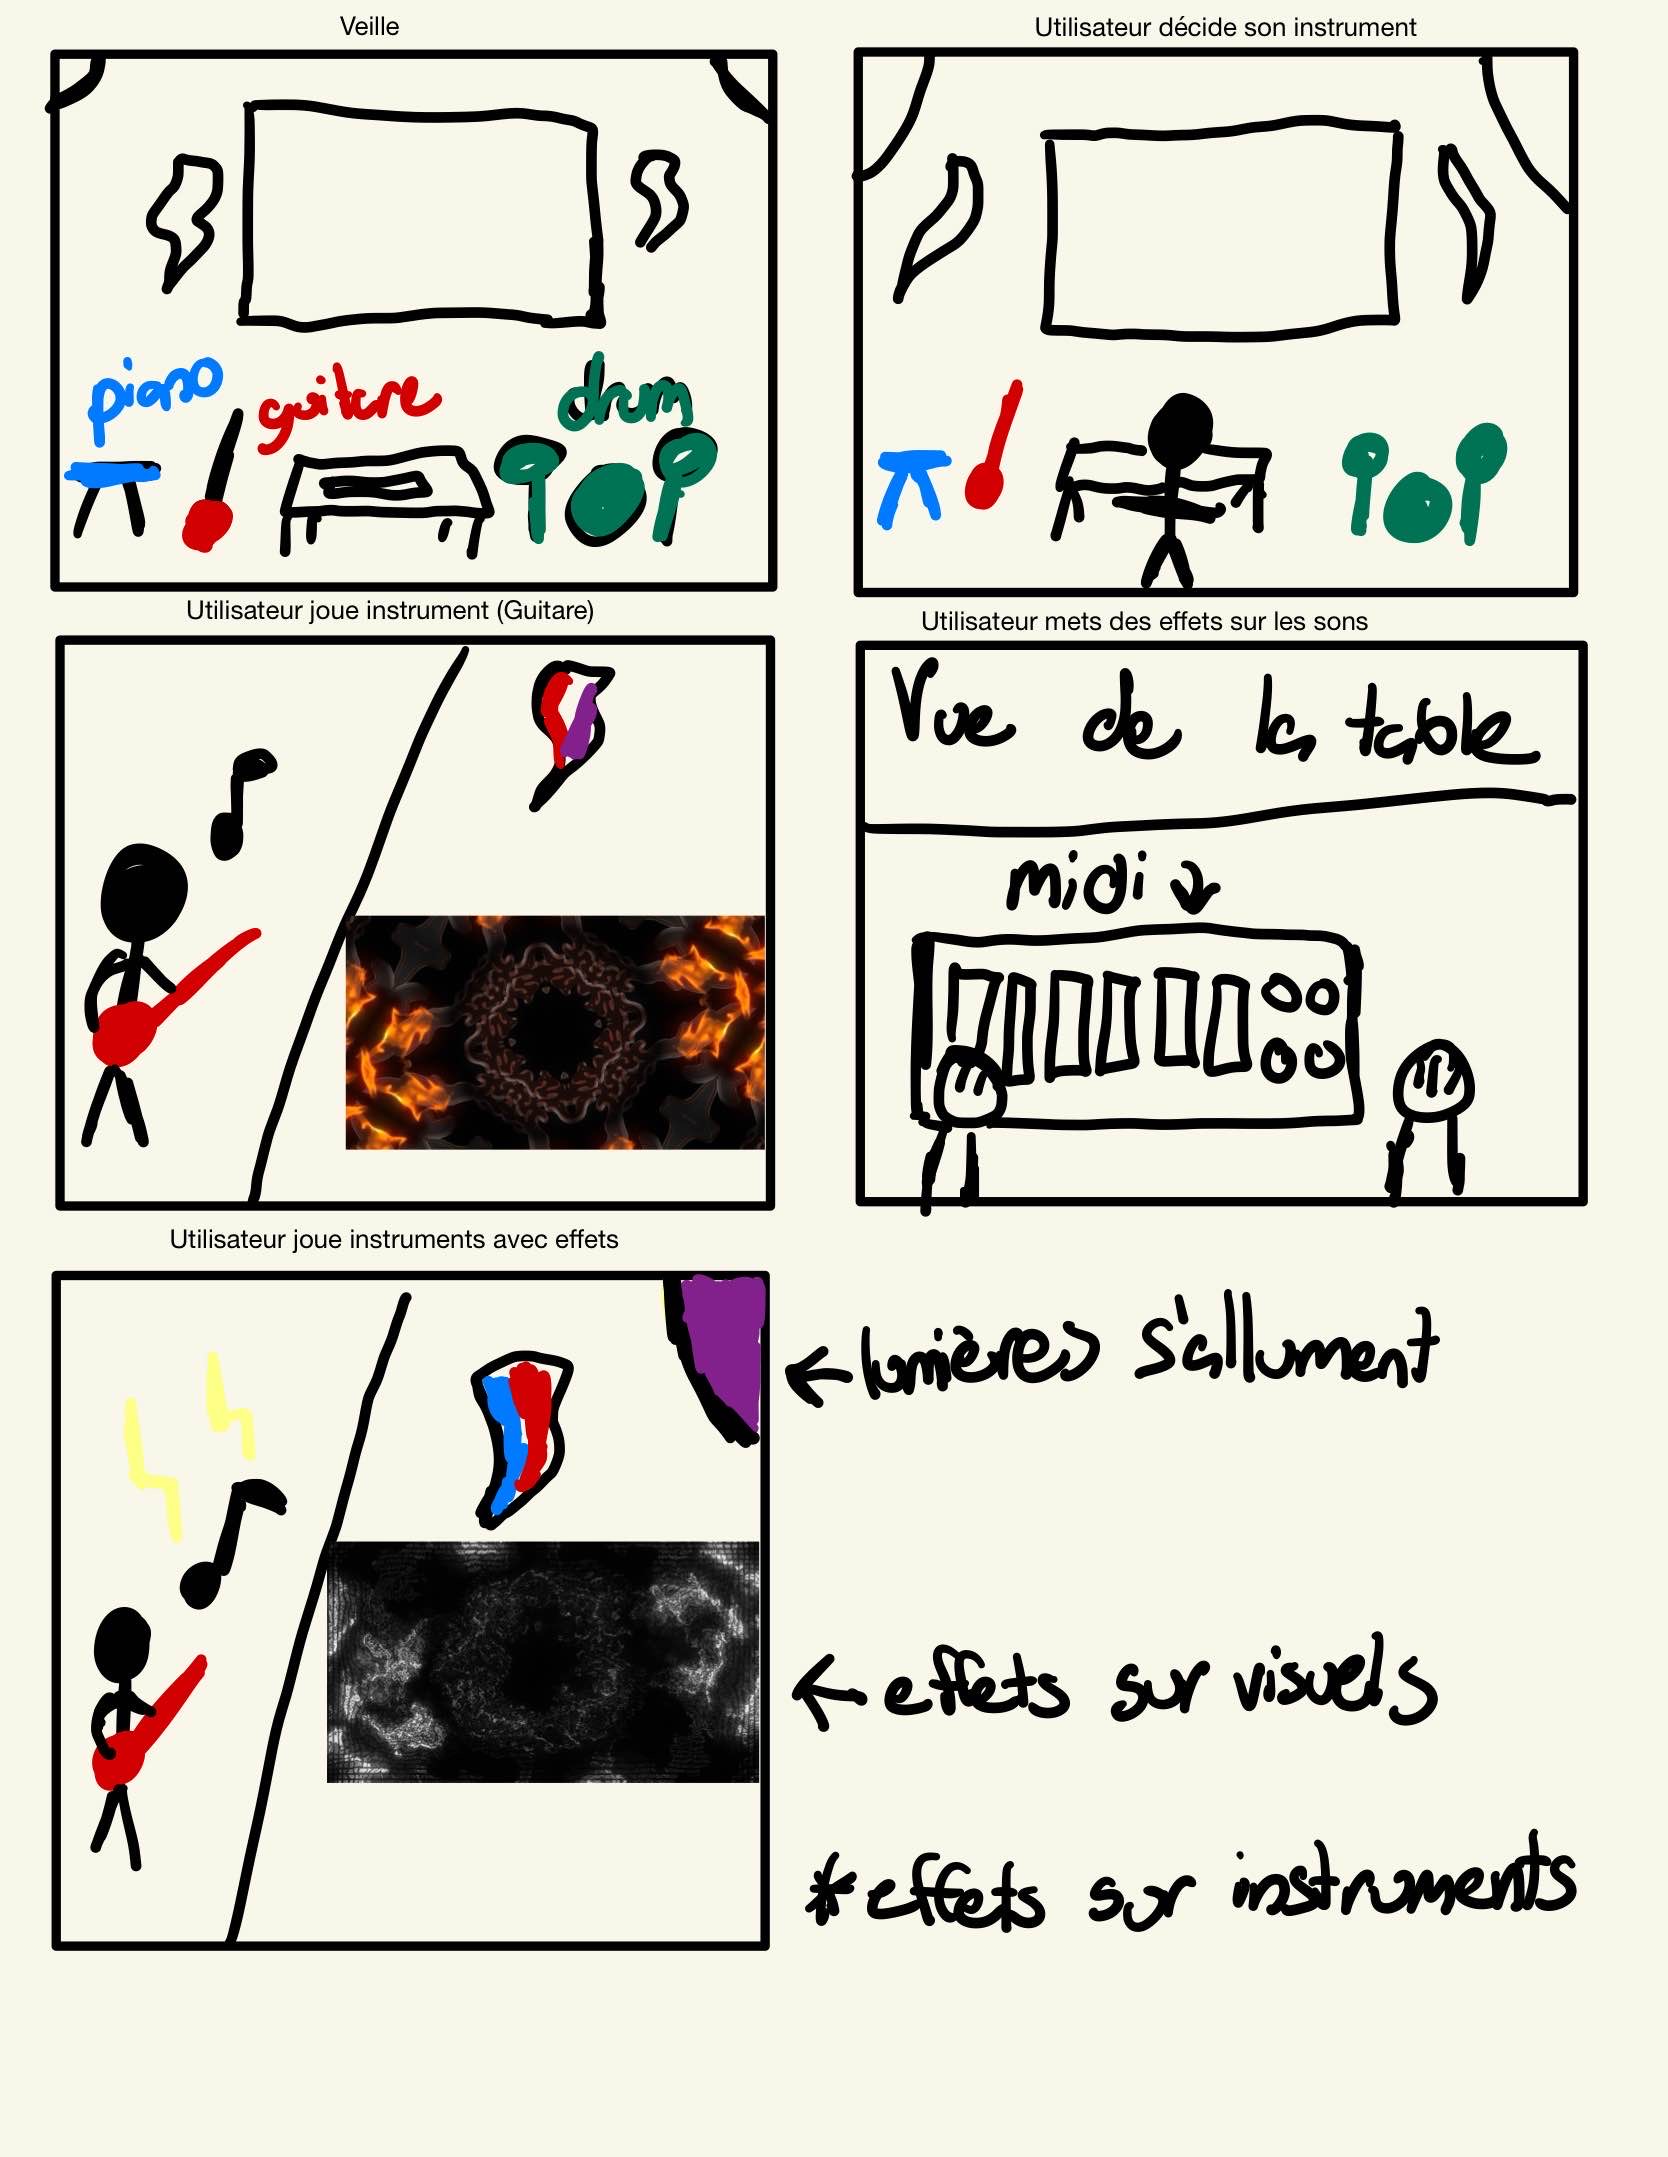 Veille
piano
guitare
drum
Utilisateur décide son instrument
Utilisateur joue instrument (Guitare)
Utilisateur mets des effets sur les sons
Vue de la table
midi
Utilisateur joue instruments avec effets
lumières s'allument
effets sur visuels
*effets sur instruments